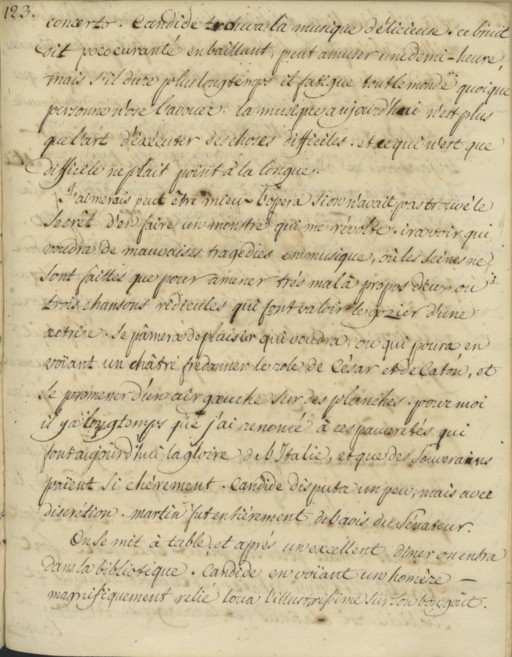 123.
concerto. Candide trouva la musique délicieuse. ce bruit
dit pococuranté en baillant, peut amuser une demi-heure,
mais s'il dure plus longtemps il fatigue tout le monde quoique
personne n'ose l'avouer. la musique aujourd'hui n'est plus
que l'art d'exécuter des choses difficiles. et ce qui n'est que
difficile ne plait point à la longue.
J'aimerais peut etre mieux l'opera si on n'avait pas trouvé le
secret d'en faire un monstre qui me révolte. ira voir qui
voudra de mauvaises tragédies en musique, où les scènes ne
sont faittes que pour amener très mal à propos deux ou
trois chansons ridicules qui font valoir le gozier d'une
actrice. se pâmera de plaisir qui voudra, ou qui poura en
voiant un châtré fredonner le role de César et de Caton, et
se promener d'un air gauche sur des planches. pour moi
il y a longtemps que j'ai renoncé à ces pauvretés qui
font aujourd'hui la gloire de l'Italie, et que des souverains
paient si chèrement. Candide disputa un peu, mais avec
discrétion. martin fut entièrement de l'avis du Sénateur.
On se mit à table, et après un excellent diner on entra
dans la bibliotèque. Candide en voiant un homère —
magnifiquement relié loua l'illustrissime sur son bon goût.